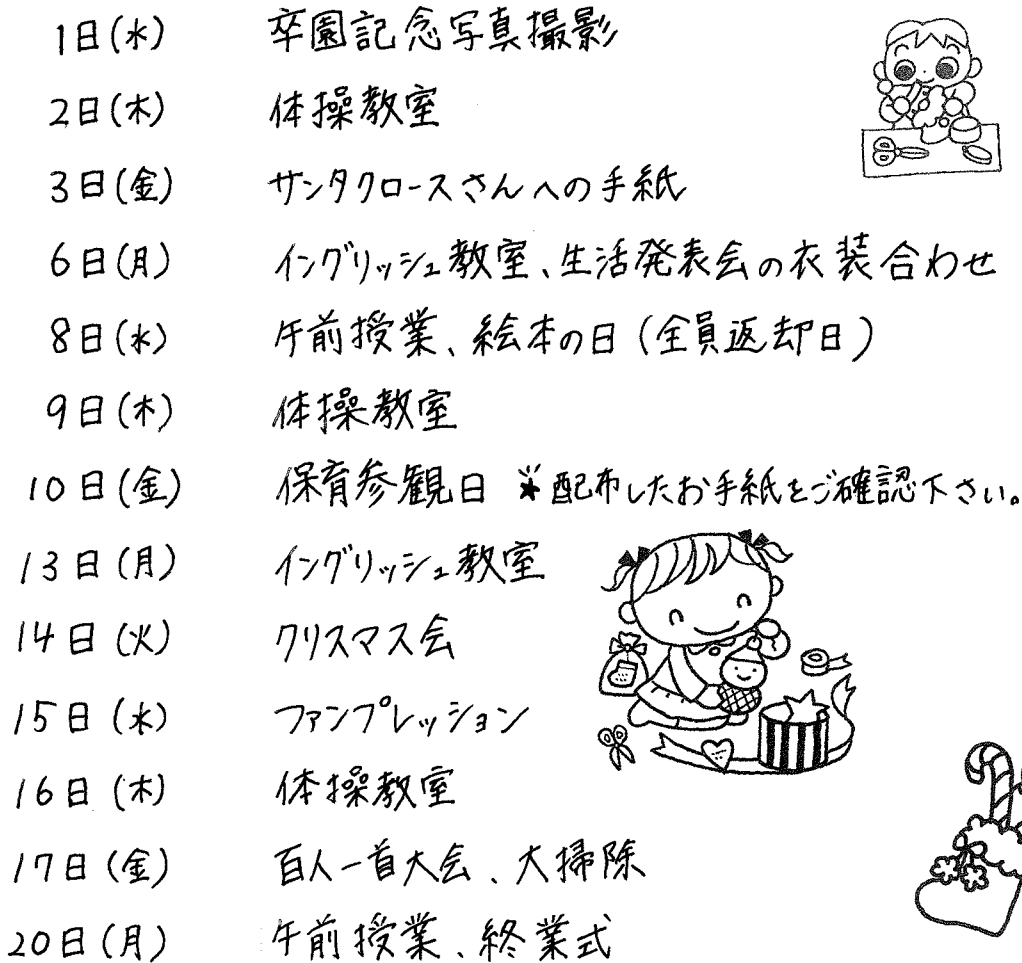 1日(水) 卒園記念写真撮影
2日(木) 体操教室
3日(金) サンタクロースさんへの手紙
6日(月) イングリッシュ教室、生活発表会の衣装合わせ
8日(水) 午前授業、絵本の日(全員返却日)
9日(木) 体操教室
10日(金) 保育参観日 ※配布したお手紙をご確認下さい。
13日(月) イングリッシュ教室
14日(火) クリスマス会
15日(水) ファンプレッション
16日(木) 体操教室
17日(金) 百人一首大会、大掃除
20日(月) 午前授業、終業式